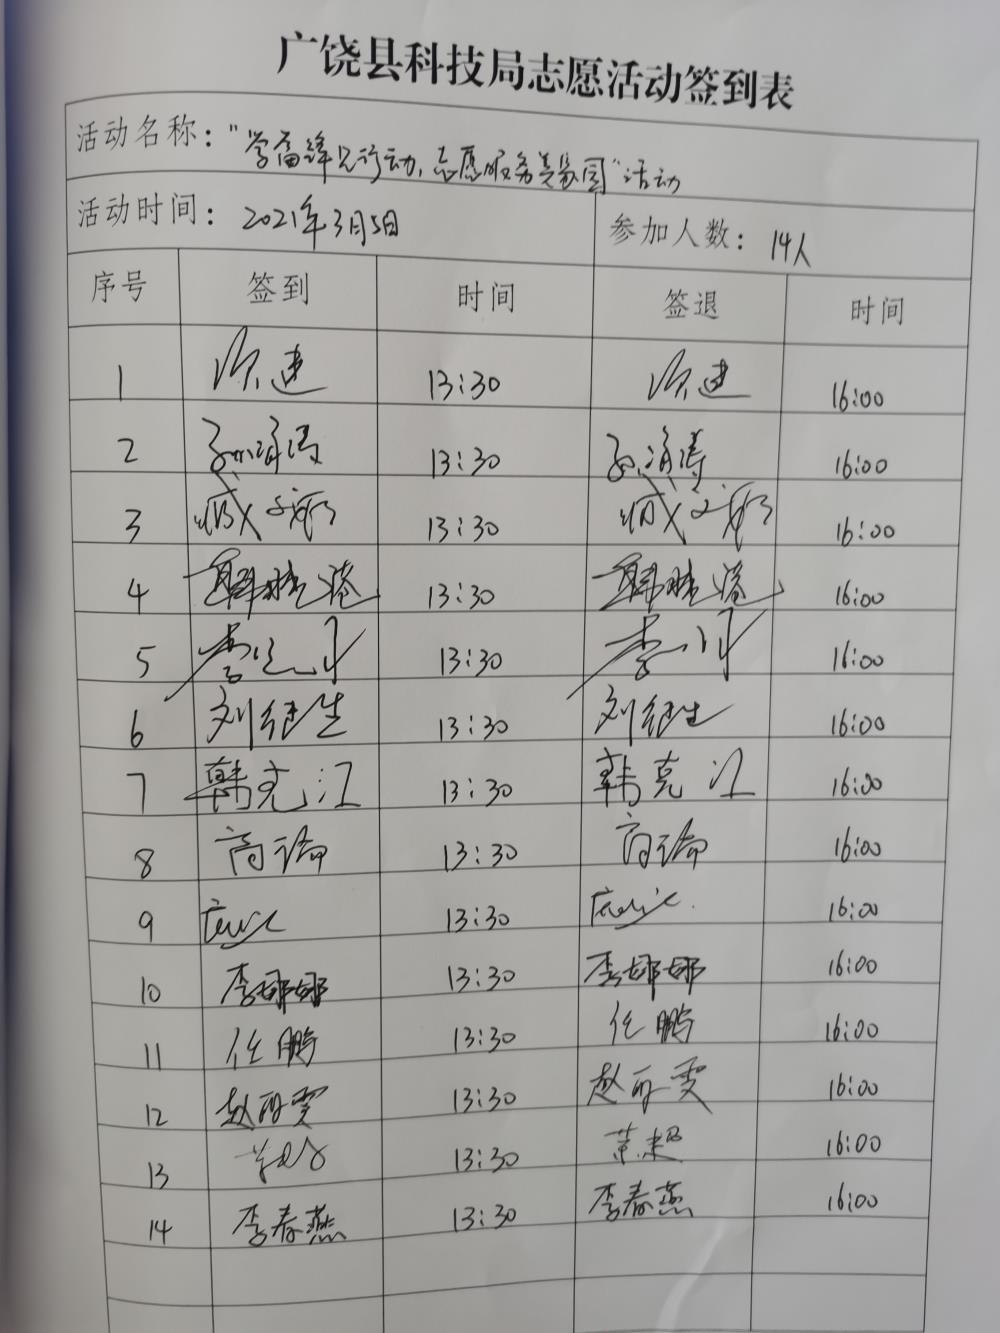 广饶县科技局志愿活动签到表
活动名称："学雷锋见行动，志愿服务美家园"活动
活动时间：2021年3月5日 参加人数：14人
序号 签到 时间 签退 时间
1 13:30 16:00
2 13:30 16:00
3 13:30 16:00
4 13:30 16:00
5 13:30 16:00
6 刘继生 13:30 刘继生 16:00
7 韩克江 13:30 韩克江 16:00
8 商瑜 13:30 商瑜 16:00
9 13:30 16:00
10 李娜娜 13:30 李娜娜 16:00
11 任鹏 13:30 任鹏 16:00
12 赵雯 13:30 赵雯 16:00
13 13:30 16:00
14 李春燕 13:30 李春燕 16:00